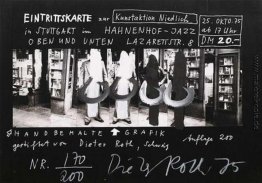 EINTRITTSKARTE zur Kunstaktion Niedlich
25. OKTO. 75
ab 17 Uhr
DM 20.-
in STUTTGART im HAHNENHOF-JAZZ
OBEN UND UNTEN LAZARETTSTR. 8
HANDBEMALTE GRAFIK
gestiftet von Dieter Roth, Auflage 200
NR. 170/200 Dieter Roth 75